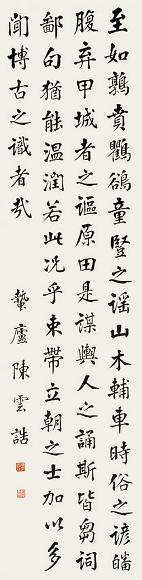 至如鶉賁鸜鵒童豎之謡山木輔車時俗之諺皤
腹弃甲城者之謳原田是謀輿人之誦斯皆芻詞
鄙句猶能温润若此况乎束帶立朝之士加以多
聞博古之識者哉
蟄廬陳雲誥